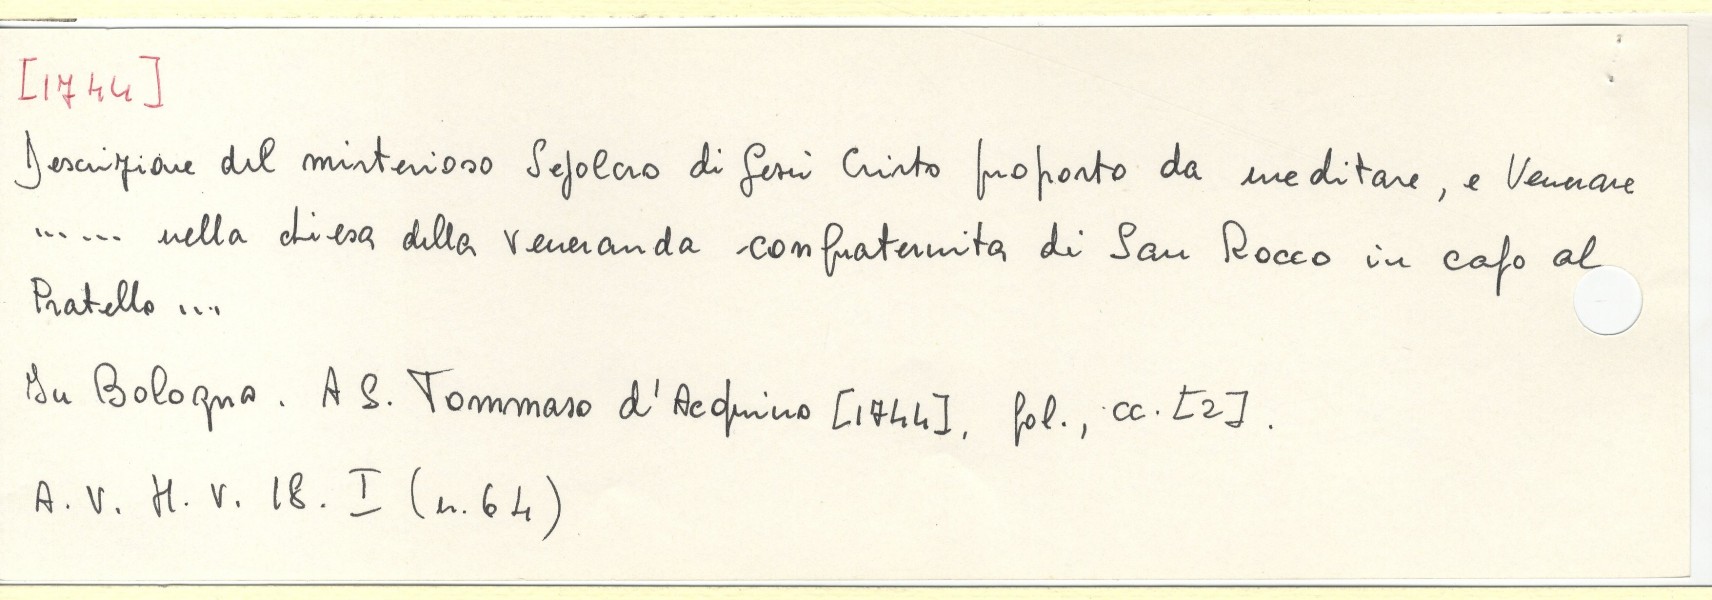 [1744]
Descrizione del misterioso Sepolcro di Gesù Cristo proposto da meditare, e Venerare
...... nella chiesa della veneranda confraternita di San Rocco in capo al
Pratello ...
In Bologna. A S. Tommaso d'Acquino [1744], fol., cc. [2].
A. V. H. V. 18. I (n. 64)